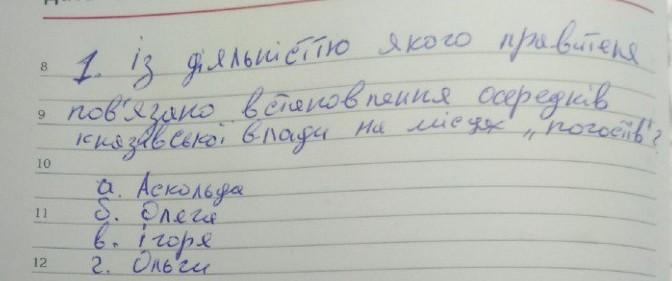 8 1. із діяльністю якого правителя
9 пов'язано встановлення осередків
князівської влади на місцях „погостів"?
10
а. Аскольда
11 б. Олега
в. Ігоря
12 г. Ольги